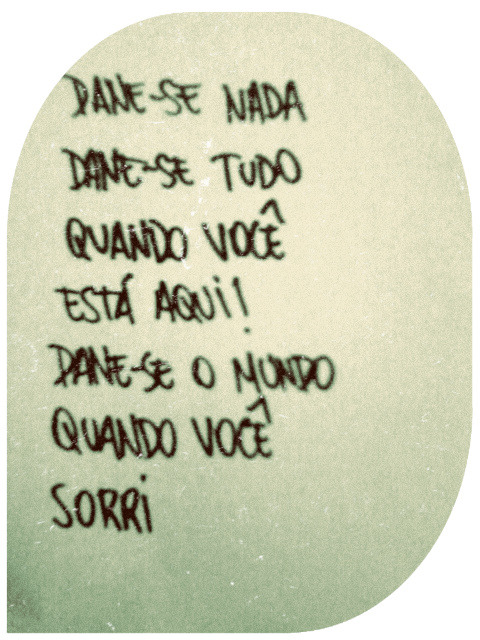 DANE-SE NADA
DANE-SE TUDO
QUANDO VOCÊ
ESTÁ AQUI!
DANE-SE O MUNDO
QUANDO VOCÊ
SORRI